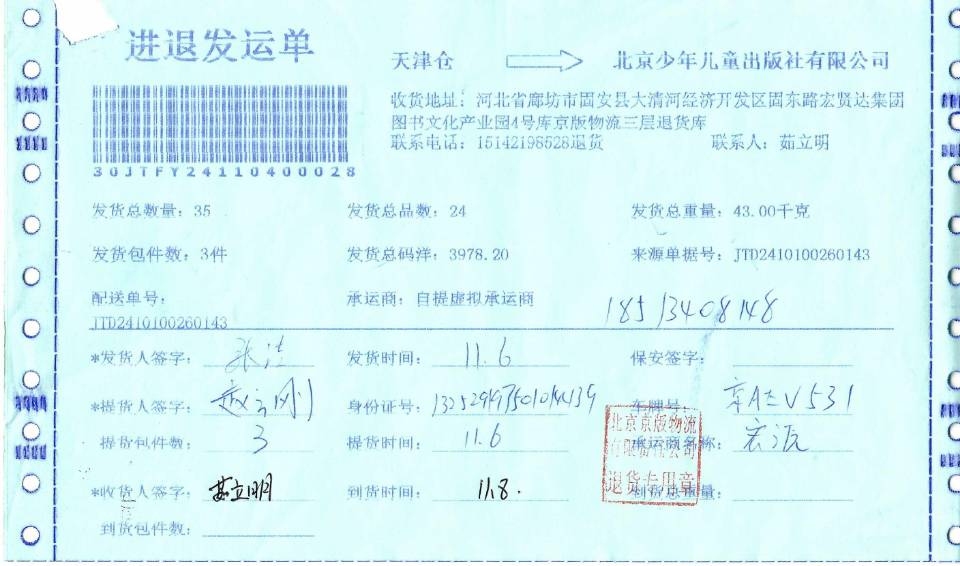 进退发运单
天津仓 北京少年儿童出版社有限公司
收货地址：河北省廊坊市固安县大清河经济开发区固东路宏贤达集团
图书文化产业园4号库京版物流三层退货库
联系电话：15142198528退货 联系人：茹立明
30JTFY24110400028
发货总数量：35 发货总品数：24 发货总重量：43.00千克
发货包件数：3件 发货总码洋：3978.20 来源单据号：JTD2410100260143
配送单号： 承运商：自提虚拟承运商 18513408148
JTD2410100260143
*发货人签字： 张洁 发货时间： 11.6 保安签字：
*提货人签字： 赵立刚 身份证号： 车牌号： 531
提货包件数： 3 提货时间： 11.6 承运商名称： 宏源
*收货人签字： 茹立明 到货时间： 11.8. 到货总重量：
到货包件数：
北京京版物流
有限责任公司
退货专用章